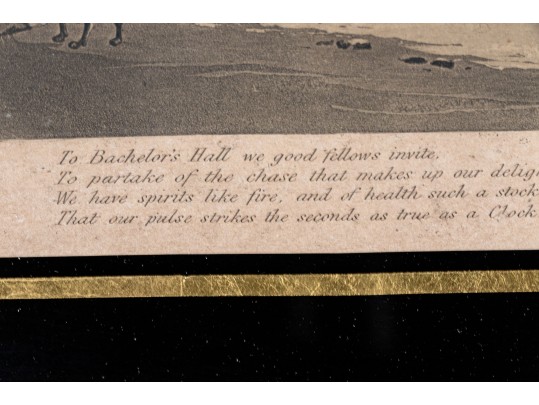 To Bachelor's Hall we good fellows invite,
To partake of the chase that makes up our deligh
We have spirits like fire, and of health such a stock
That our pulse strikes the seconds as true as a Clock